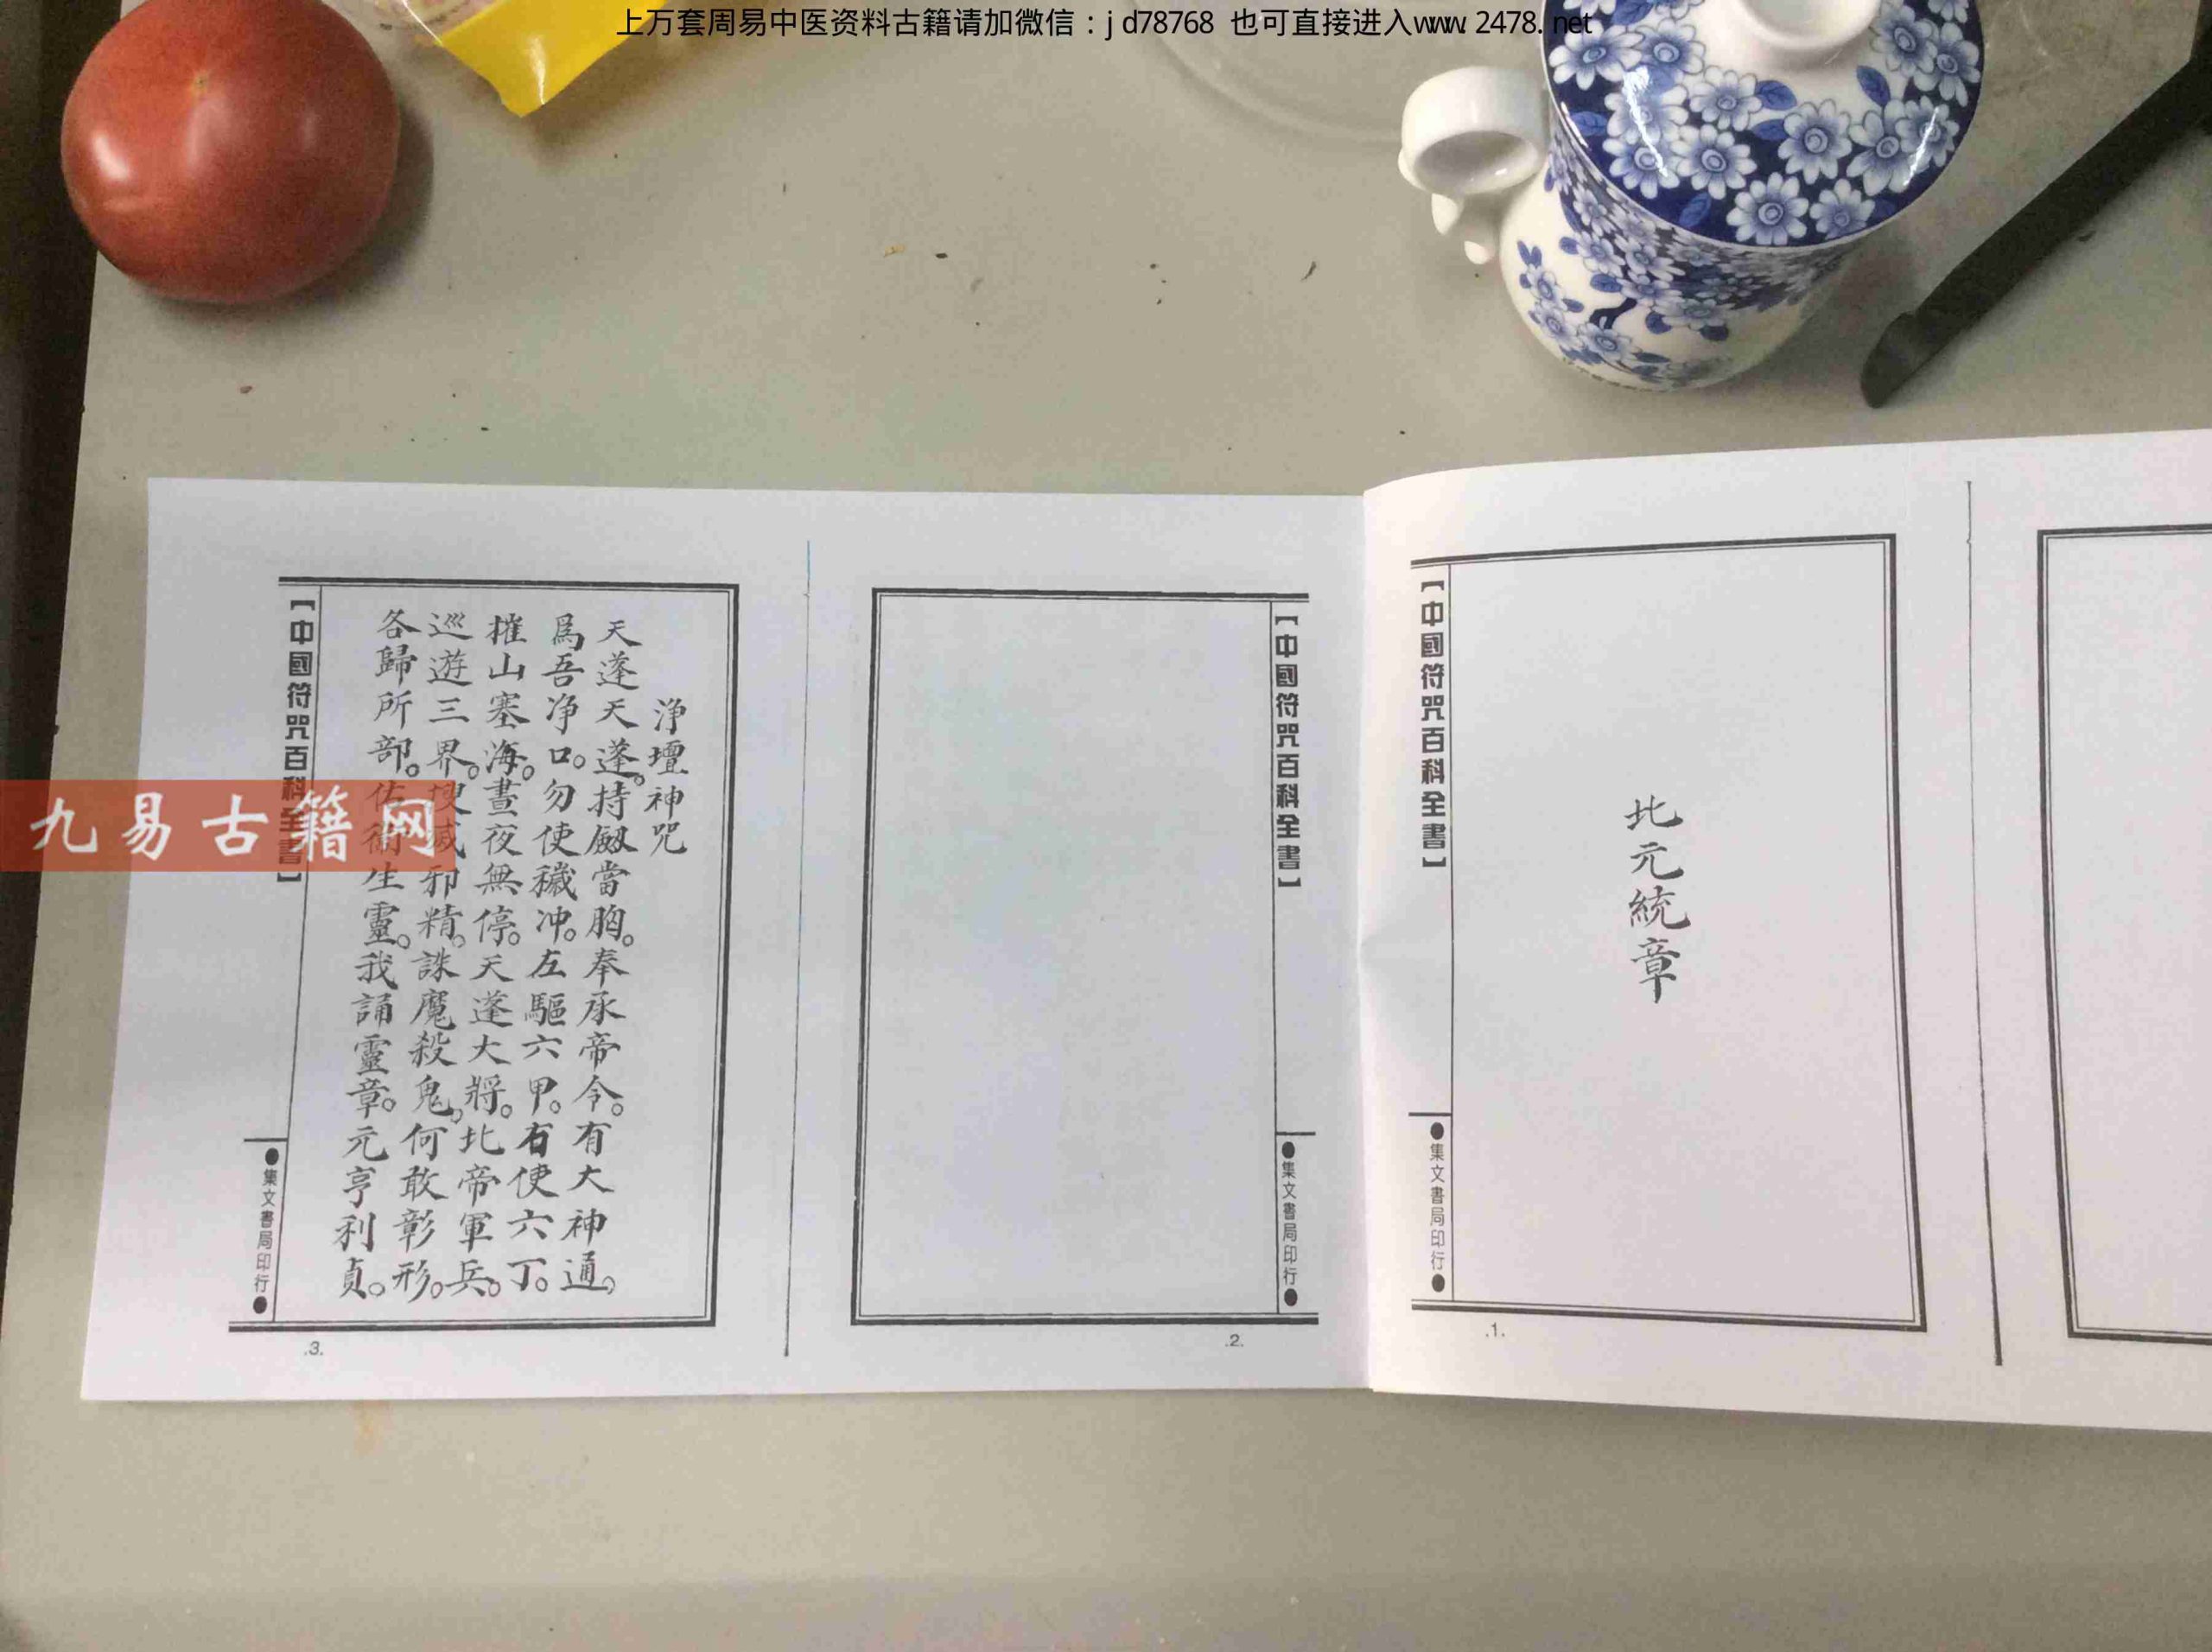 上万套周易中医资料古籍请加微信：jd78768 也可直接进入www.2478.net
【中國符咒百科全書】
北元統章
●集文書局印行●
.1.
【中國符咒百科全書】
●集文書局印行●
.2.
淨壇神咒
天蓬天蓬。持劔當胸。奉承帝令。有大神通。
爲吾净口。勿使穢冲。左驅六甲。右使六丁。
摧山塞海。晝夜無停。天蓬大將。北帝軍兵。
巡遊三界。搜滅邪精。誅魔殺鬼。何敢彰形。
各歸所部。佑衛生靈。我誦靈章。元亨利貞。
【中國符咒百科全書】
●集文書局印行●
.3.
九易古籍网